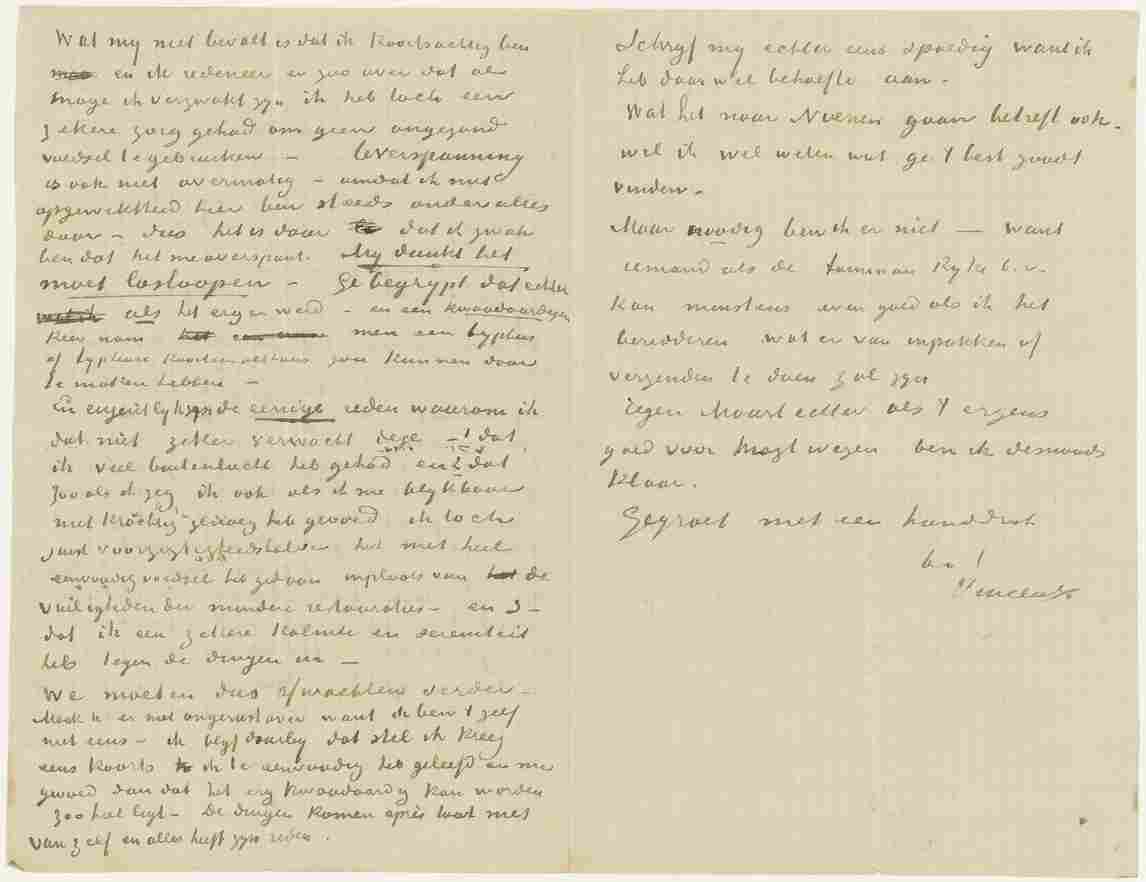 Wat my niet bevalt is dat ik koortsachtig ben
en ik redeneer er zoo over dat al
moge ik verzwakt zyn ik heb toch een
zekere zorg gehad om geen ongezond
voedsel te gebruiken – Overspanning
is ook niet overmatig – omdat ik met
opgewektheid hier ben steeds onder alles
door – dus het is door dat ik zwak
ben dat het me overspant. My dunkt het
moet losloopen – Ge begrypt dat echter
als het erger werd – en een kwaadaardigen
keer nam men een typhus
of typheuse koorts zou kunnen door
te maken hebben –
En eigentlyk de eenige reden waarom ik
dat niet zeker verwacht deze – 1 dat
ik veel buitenlucht heb gehad en 2 dat
zooals ik zeg ik ook als ik me blykbaar
niet krachtig genoeg heb gevoed ik toch
juist voorzigtigheidshalve het met heel
eenvoudig voedsel heb gedaan inplaats van de
vuiligheden der mindere restauraties – en 3 –
dat ik een zekere kalmte en sereniteit
heb tegen de dingen in –
We moeten dus afwachten verder –
Maak U er niet ongerust over want ik ben 't zelf
niet eens – ik blyf daarby dat stel ik kreeg
eens koorts ik te eenvoudig heb geleefd en me
gevoed dan dat het erg kwaadaardig kan worden
zoo heel ligt – De dingen komen après tout niet
van zelf en alles heeft zyn reden.
Schryf my echter eens spoedig want ik
heb daar wel behoefte aan –
Wat het naar Nuenen gaan betreft ook –
wil ik wel weten wat ge 't best zoudt
vinden –
Maar noodig ben ik er niet – want
iemand als de tuinman Ryke b.v.
kan minstens even goed als ik het
beredderen wat er van inpakken of
verzenden te doen zal zyn
Tegen Maart echter als 't ergens
goed voor mogt wezen ben ik desnoods
klaar.
Gegroet met een handdruk
b. à t.
Vincent